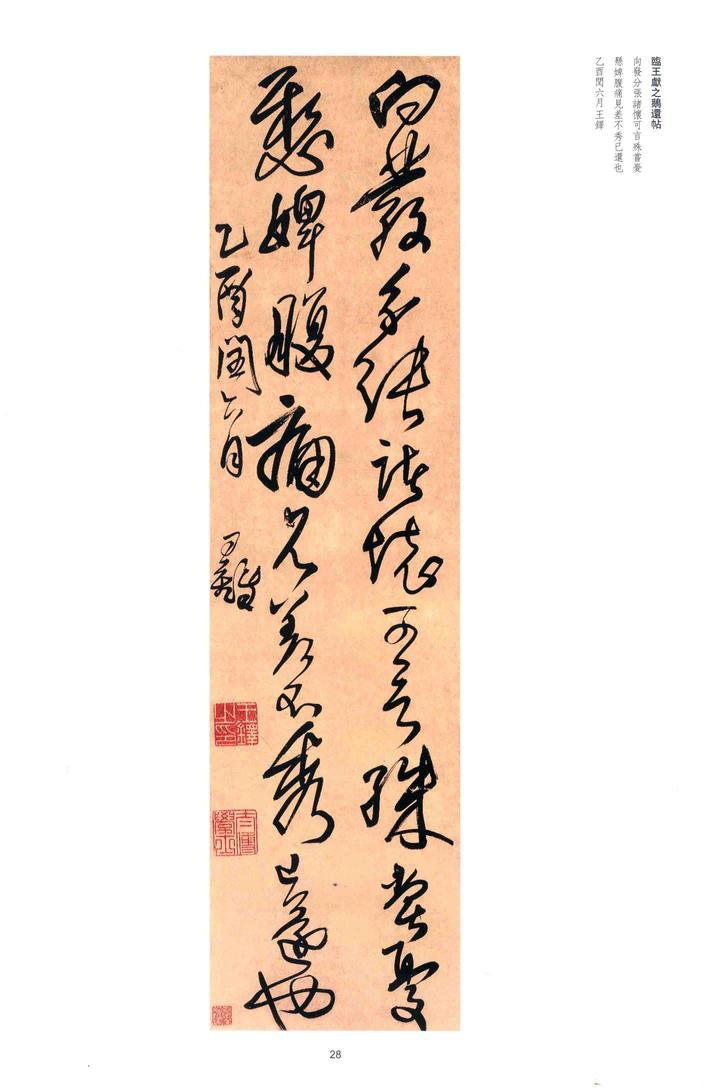 臨王獻之鵝還帖
向發分張諸懷可言殊嘗憂
懸婢腹痛見差不秀已還也
乙酉閏六月王鐸
向發分張諸懷可言殊嘗憂
懸婢腹痛見差不秀已還也
乙酉閏六月王鐸
王鐸之印
28